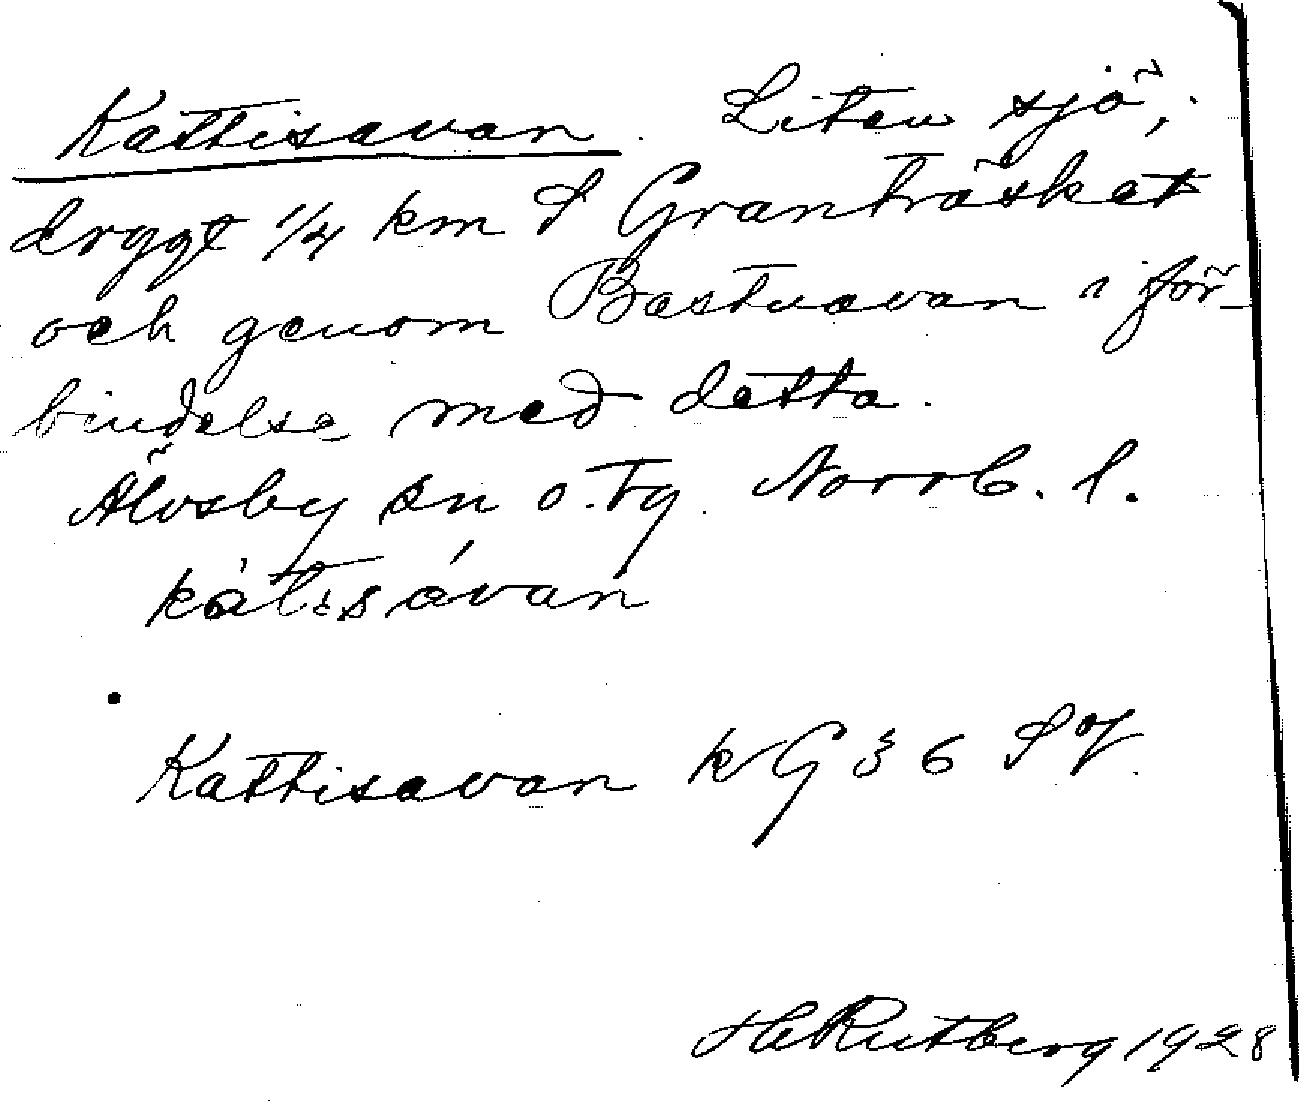 Kattisavan. Liten sjö,
drygt 1/4 km S Granträsket
och genom Bastuavan i för-
bindelse med detta.
Älvsby sn o. tg. Norrb. l.
kàtɩsávan
Kattisavan kG 36 SV
HRutberg 1928